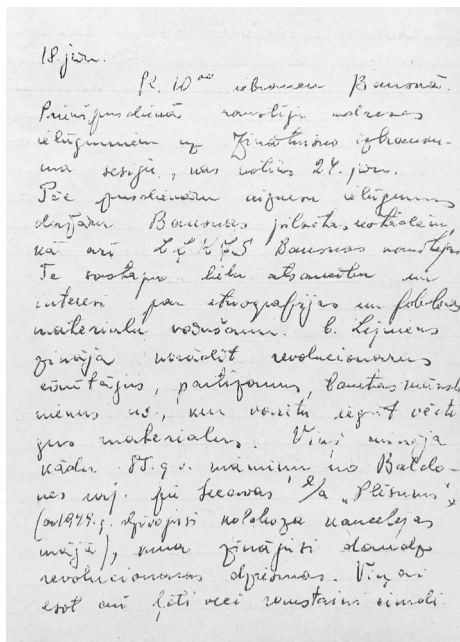 18. jūn.
Pl. 10⁰⁰ iebraucam Bauskā.
Priekšpusdienā rakstīju adreses
ielūgumiem uz Zinātnisko izbrauku-
ma sesiju, kas notiks 24. jūn.
Pēc pusdienām aiznesu ielūgumus
dažām Bauskas pilsētas iestādēm,
kā arī LĻKJS Bauskas komitejai
Te sastapu lielu atsaucību un
interesi par etnogrāfijas un folkloras
materialu vākšanu. b. Lejnieks
zināja norādīt revolucionarus
cīnītājus, partizanus, tautas māksli
niekus uc., kur varētu iegūt vērtī
gus materialus. Viņš mināja
kādu 85.g.v. māmiņu no Baldo-
nes raj. pie Iecavas l/a „Plūsums",
(ar 1944.g. dzīvojusi kolhoza kancelejas
mājā), kura zinājusi daudz
revolucionaras dziesmas. Viņai
esot arī ļoti veci rakstaini cimdi.